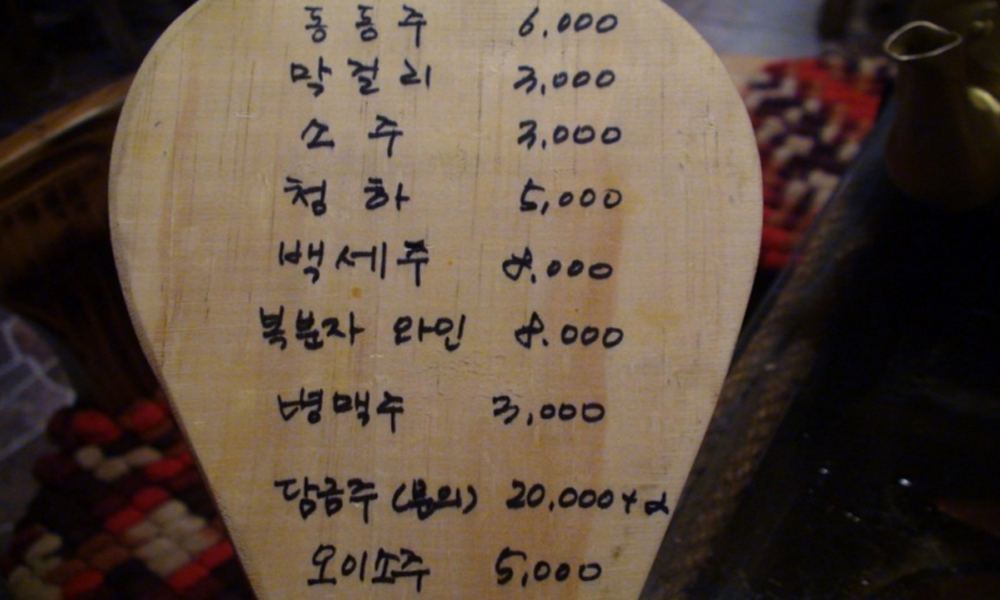 동동주 6,000
막걸리 3,000
소주 3,000
청하 5,000
백세주 8.000
복분자 와인 8.000
병맥주 3,000
담금주 (문의) 20,000+α
오이소주 5,000